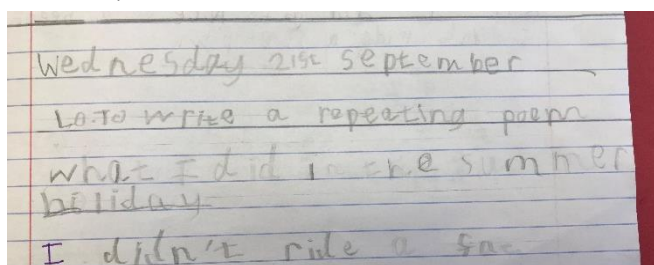 Wednesday 21st September
LO.To write a repeating poem
What I did in the summer
holiday
I didn't ride a